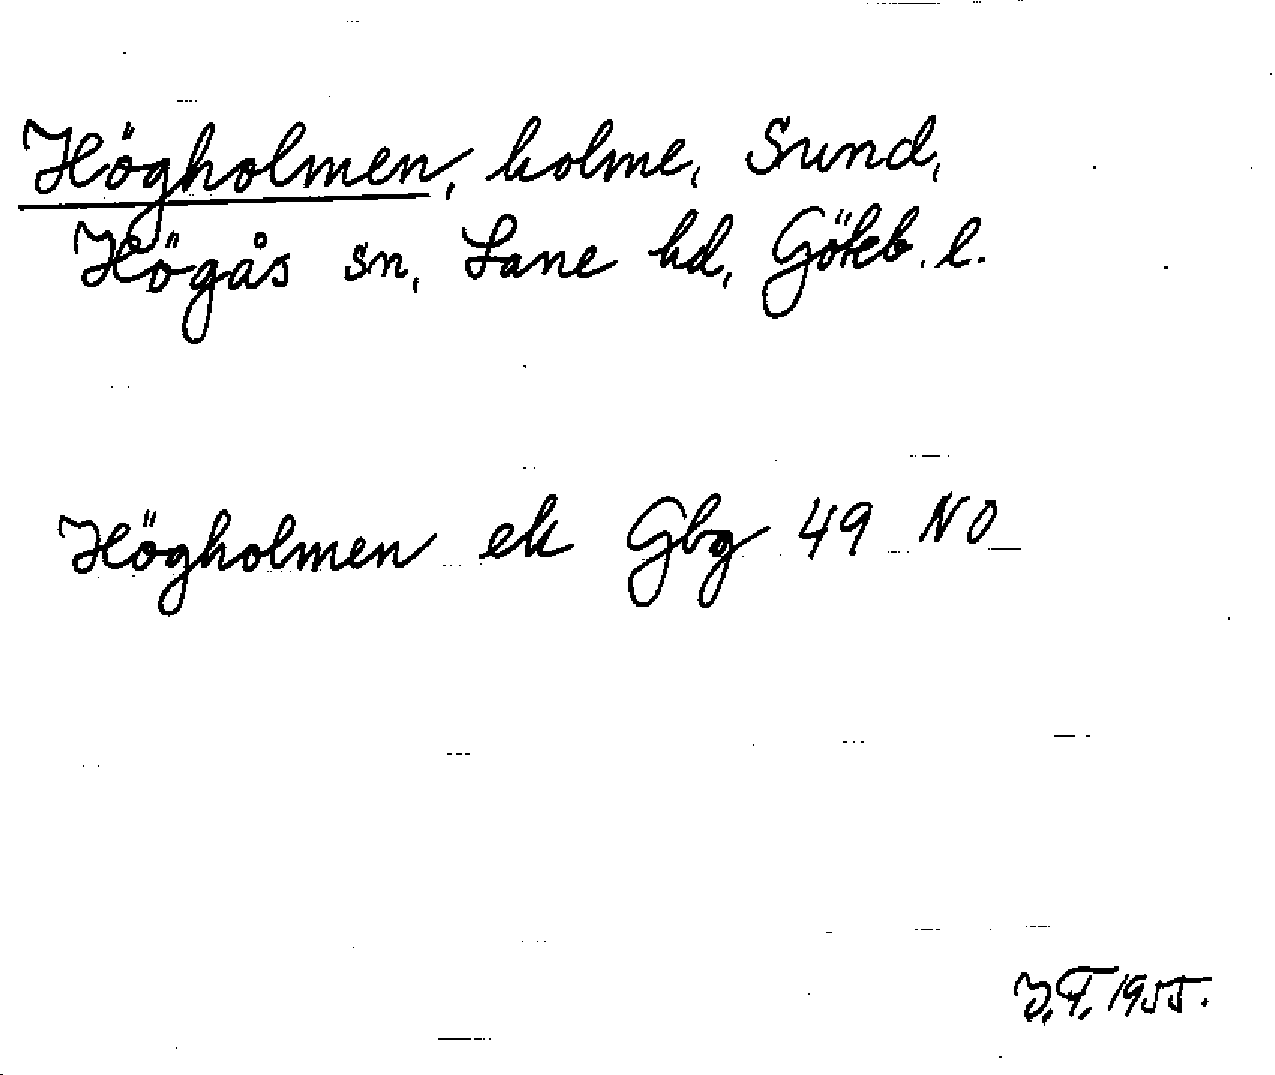 Högholmen, holme, Sund,
Högås sn, Lane hd, Göteb. l.
Högholmen ek Gbg 49 NO
1955.